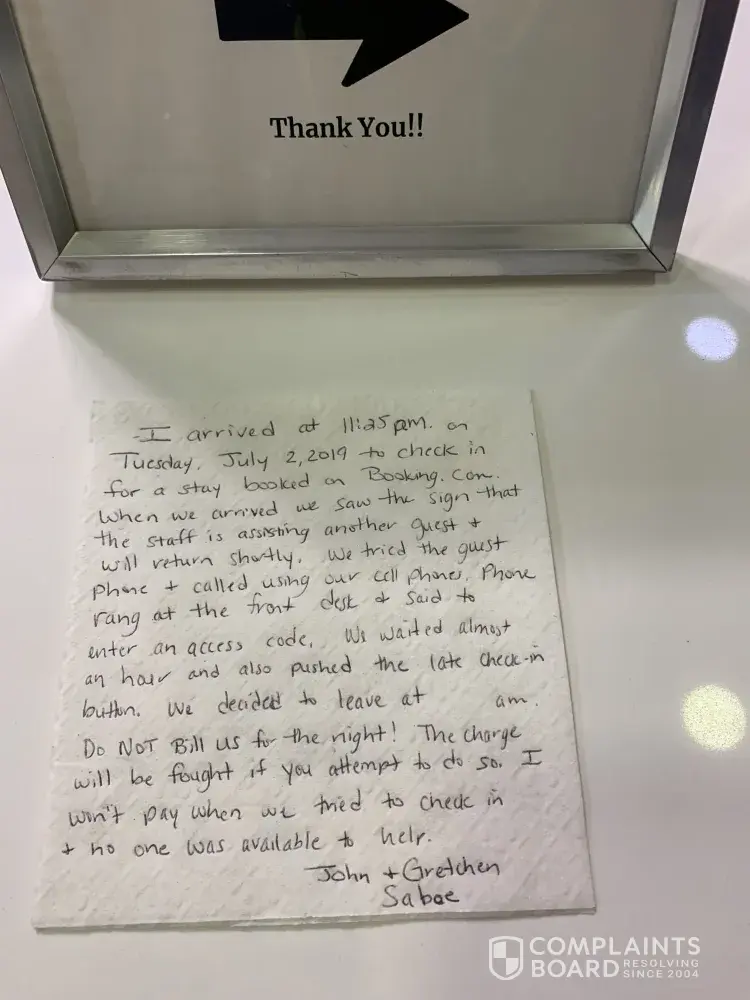 Thank You!!
I arrived at 11:25 pm. on
Tuesday, July 2, 2019 to check in
for a stay booked on Booking.com.
When we arrived we saw the sign that
the staff is assisting another guest +
will return shortly. We tried the guest
phone + called using our cell phones. Phone
rang at the front desk + said to
enter an access code. We waited almost
an hour and also pushed the late check-in
button. We decided to leave at am.
Do NOT Bill us for the night! The charge
will be fought if you attempt to do so. I
won't pay when we tried to check in
+ no one was available to help.
John + Gretchen
Saboe
COMPLAINTS
BOARD RESOLVING
SINCE 2004